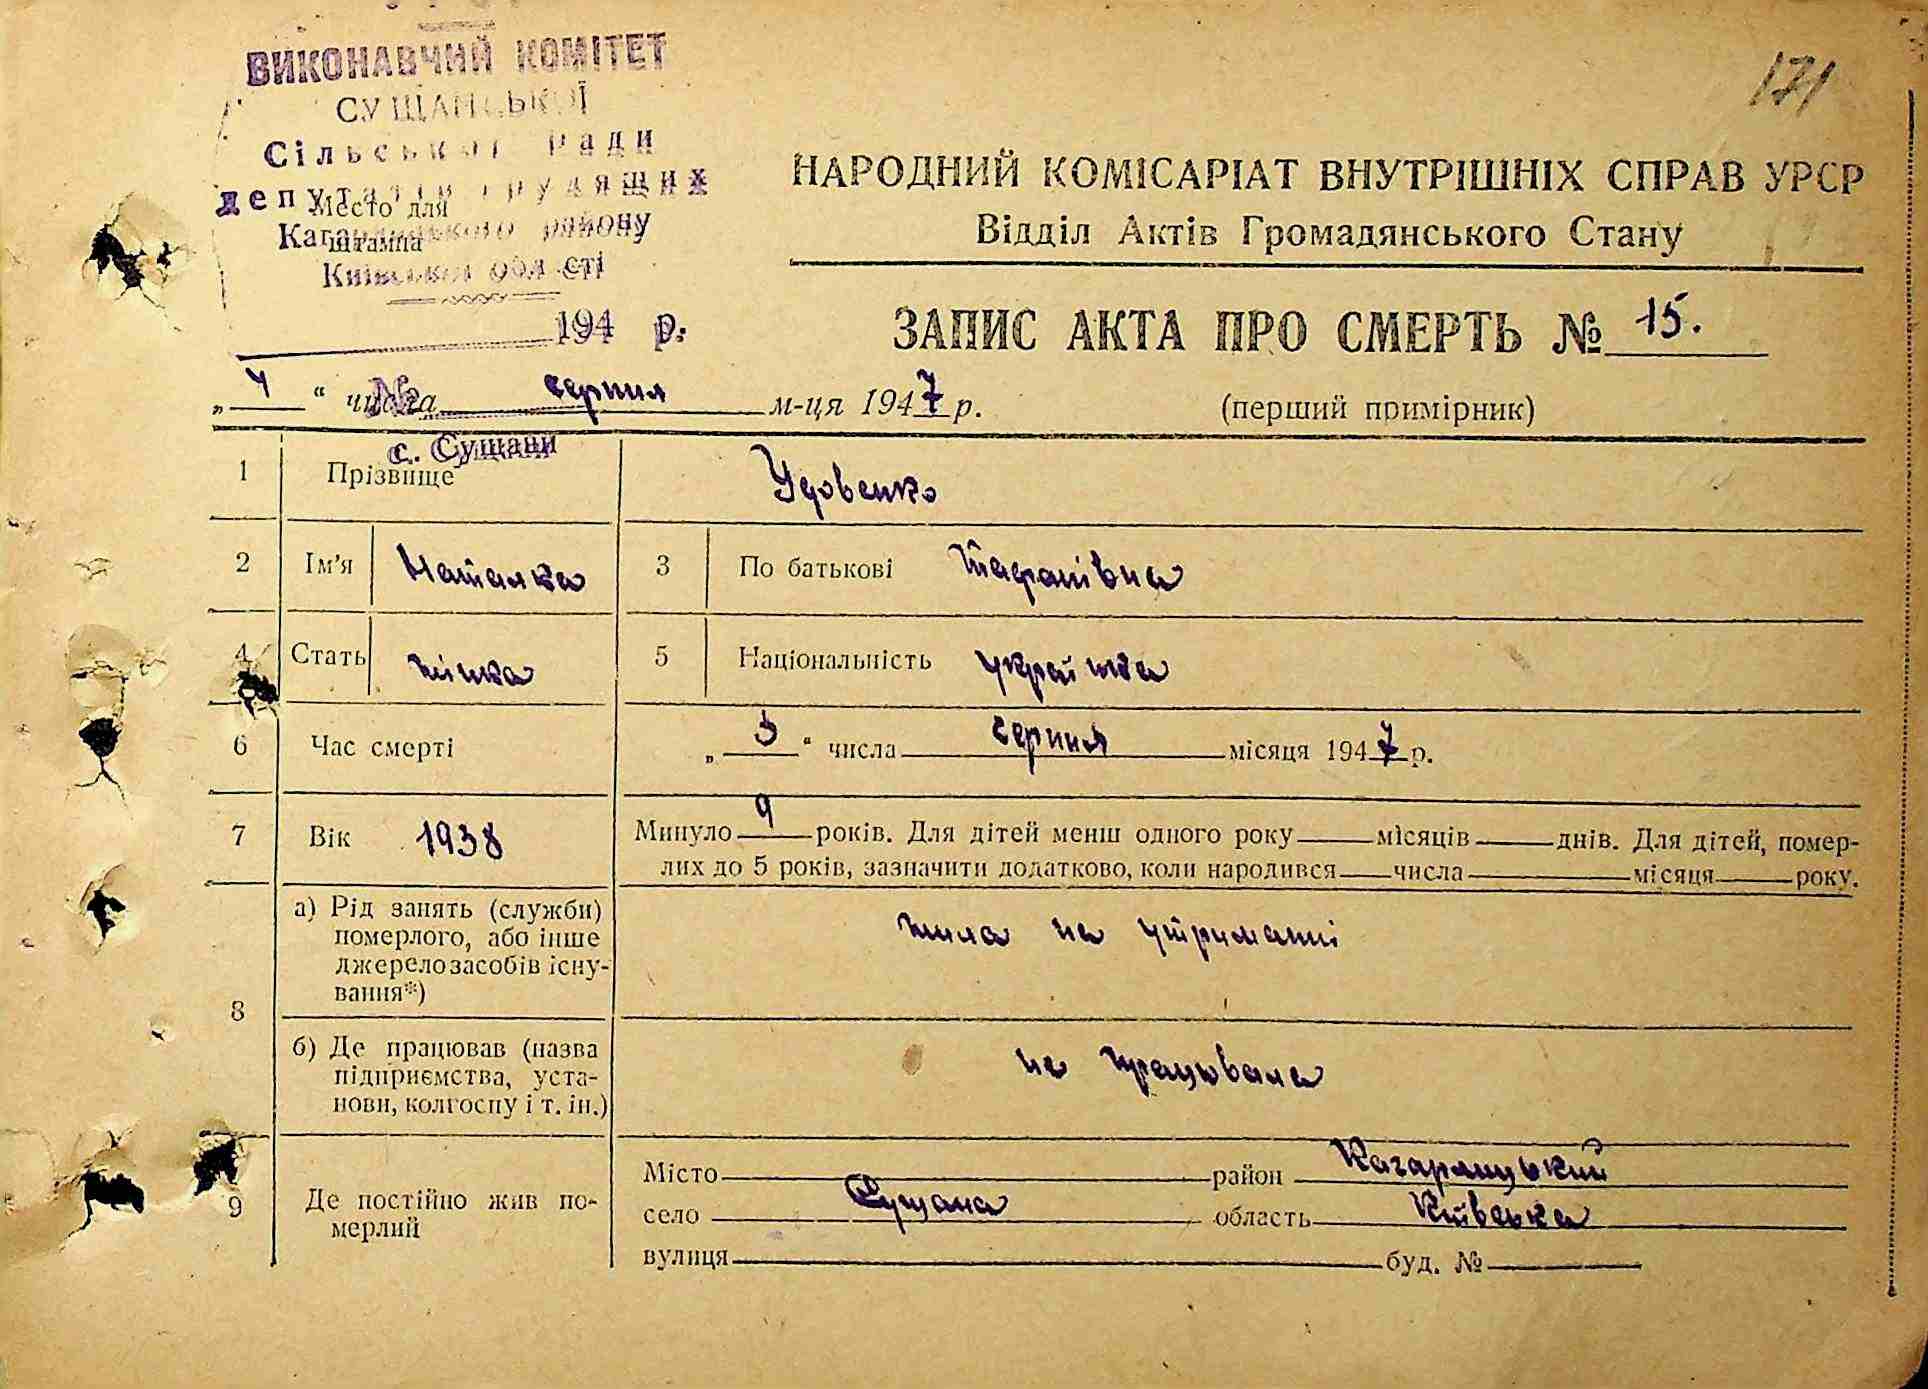 171
ВИКОНАВЧИЙ КОМІТЕТ
СУЩАНСЬКОЇ
Сільської Ради
депутатів трудящих
Место для
Кагарлицького району
штампа
Київської області
194 р.
НАРОДНИЙ КОМІСАРІАТ ВНУТРІШНІХ СПРАВ УРСР
Відділ Актів Громадянського Стану
ЗАПИС АКТА ПРО СМЕРТЬ № 15.
„4“ числа серпня м-ця 1947 р.
№
(перший примірник)
с. Сущани
1 Прізвище Удовенко
2 Ім'я Наталка 3 По батькові
4 Стать жінка 5 Національність українка
6 Час смерті „3“ числа серпня місяця 1947 р.
7 Вік 1938 Минуло 9 років. Для дітей менш одного року місяців днів. Для дітей, помер-
лих до 5 років, зазначити додатково, коли народився числа місяця року.
8 а) Рід занять (служби)
померлого, або інше
джерело засобів існу-
вання*)
жила на утриманні
б) Де працював (назва
підприємства, уста-
нови, колгоспу і т. ін.)
не працювала
9 Де постійно жив по-
мерлий
Місто район Кагарлицький
село Сущана область Київська
вулиця буд. №